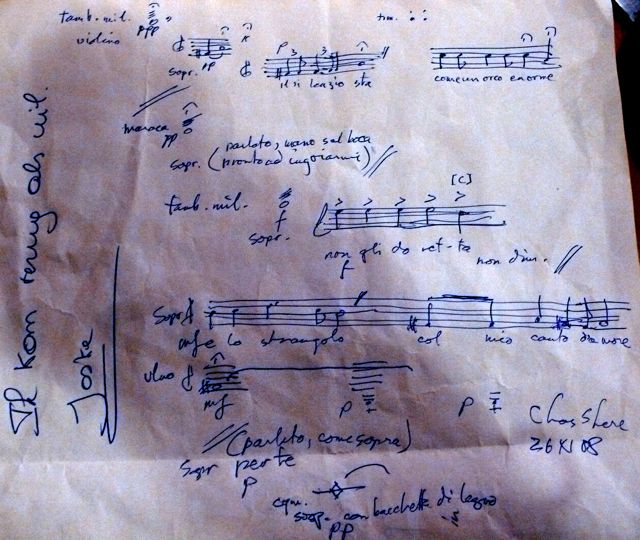 tamb. mil. ppp
tim.
violino
p 3 3
sopr. pp
il silenzio sta
come un orco enorme
maraca
pp
parlato, mano sul boca
sopr. (pronto ad ingoiarmi)
[c]
tamb. mil.
f
sopr.
non gli do ret-ta
f
non dim.
Sopr
mf e lo strangolo col mio canto d'amore
mf
p
p
Chas Shere
26 XI 08
(parlato, come sopra)
Sopr per te
p
sosp. con bacchetta di legno
pp
Ik kom terug als mil.
Joska